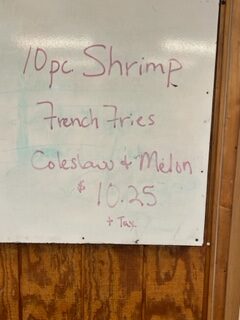 10pc Shrimp
French Fries
Coleslaw + Melon
$ 10.25
+ Tax.